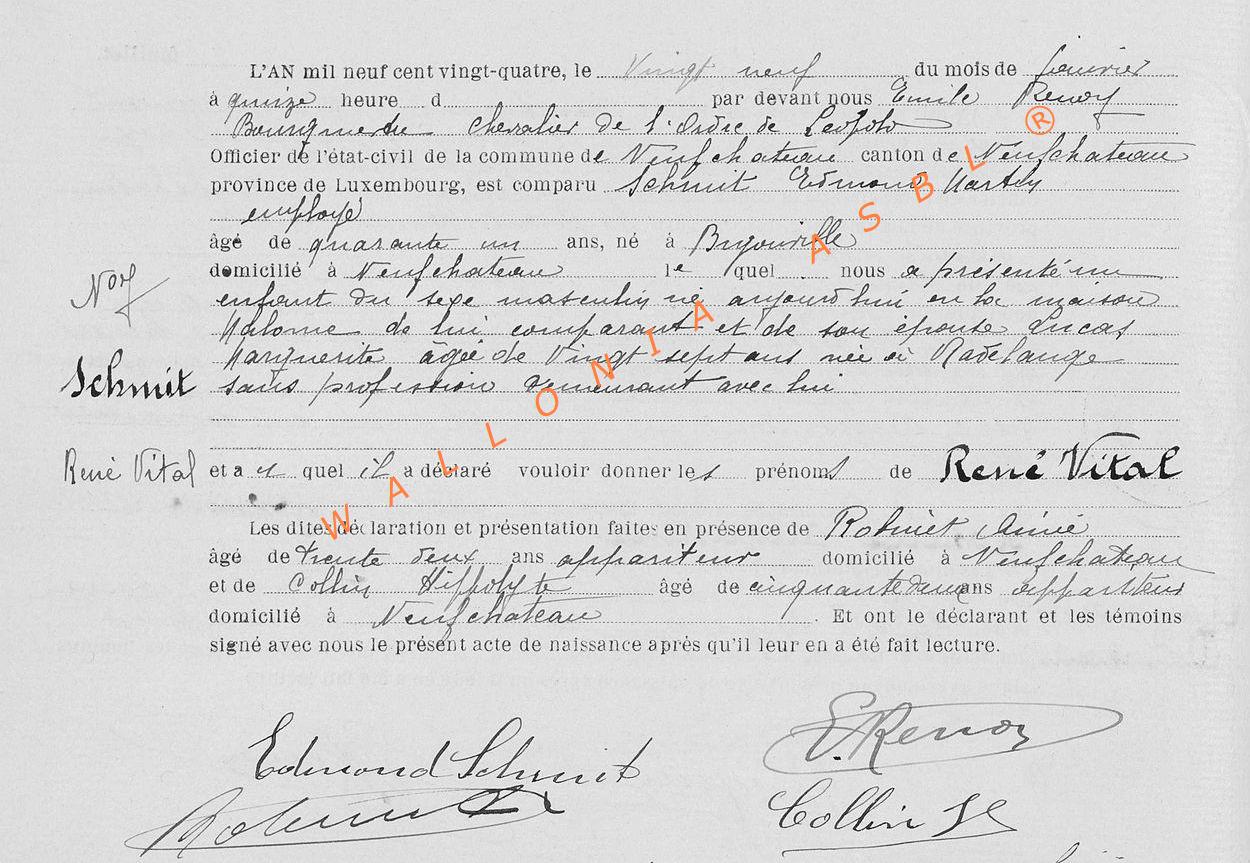 L'AN mil neuf cent vingt-quatre, le Vingt neuf du mois de Janvier
à quinze heure d par devant nous Emile Renoy
Bourgmestre Chevalier de l'Ordre de Léopold
Officier de l'état-civil de la commune de Neufchateau canton de Neufchateau
province de Luxembourg, est comparu Schmit Edmond
employé
âgé de quarante un ans, né à
domicilié à Neufchateau le quel nous a présenté un
No 7
enfant du sexe masculin né aujourd'hui en la maison
de lui comparant et de son épouse Lucas
Marguerite âgée de Vingt sept ans née à Radelange
Schmit
sans profession demeurant avec lui
René Vital
et a u quel il a déclaré vouloir donner les prénoms de René Vital
Les dites déclaration et présentation faites en présence de Robinet Aimé
âgé de trente deux ans appariteur domicilié à Neufchateau
et de Collin Hippolyte âgé de cinquante deux ans appariteur
domicilié à Neufchateau . Et ont le déclarant et les témoins
signé avec nous le présent acte de naissance aprés qu'il leur en a été fait lecture.
Edmond Schmit
E. Renoy
Robinet
Collin
WALLONIA ASBL ®